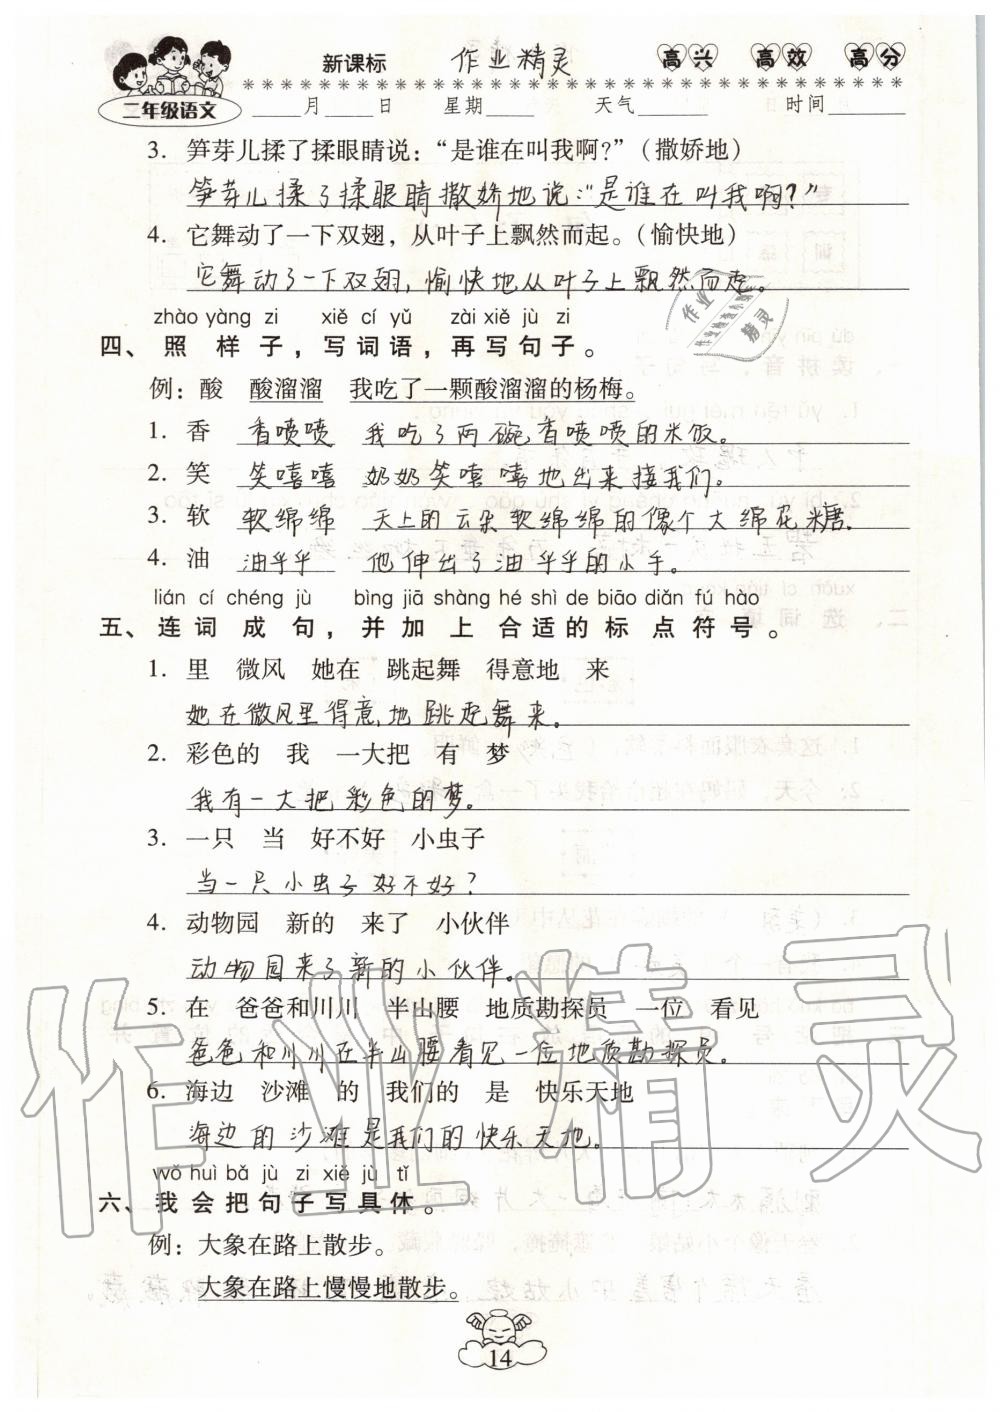 新课标 作业精灵 高兴 高效 高分
二年级语文 ____月____日 星期____ 天气______ 时间______
3. 笋芽儿揉了揉眼睛说：“是谁在叫我啊?”（撒娇地）
笋芽儿揉了揉眼睛撒娇地说：“是谁在叫我啊?”
4. 它舞动了一下双翅，从叶子上飘然而起。（愉快地）
它舞动了一下双翅，愉快地从叶子上飘然而起。
作业精灵
zhào yàng zi xiě cí yǔ zài xiě jù zi
四、照样子，写词语，再写句子。
例：酸 酸溜溜 我吃了一颗酸溜溜的杨梅。
1. 香 香喷喷 我吃了两碗香喷喷的米饭。
2. 笑 笑嘻嘻 奶奶笑嘻嘻地出来接我们。
3. 软 软绵绵 天上的云朵软绵绵的像个大绵花糖.
4. 油 油乎乎 他伸出了油乎乎的小手。
lián cí chéng jù bìng jiā shàng hé shì de biāo diǎn fú hào
五、连词成句，并加上合适的标点符号。
1. 里 微风 她在 跳起舞 得意地 来
她在微风里得意地跳起舞来。
2. 彩色的 我 一大把 有 梦
我有一大把彩色的梦。
3. 一只 当 好不好 小虫子
当一只小虫子好不好？
4. 动物园 新的 来了 小伙伴
动物园来了新的小伙伴。
5. 在 爸爸和川川 半山腰 地质勘探员 一位 看见
爸爸和川川在半山腰看见一位地质勘探员。
6. 海边 沙滩 的 我们的 是 快乐天地
海边的沙滩是我们的快乐天地。
wǒ huì bǎ jù zi xiě jù tǐ
六、我会把句子写具体。
例：大象在路上散步。
大象在路上慢慢地散步。
14
作业精灵